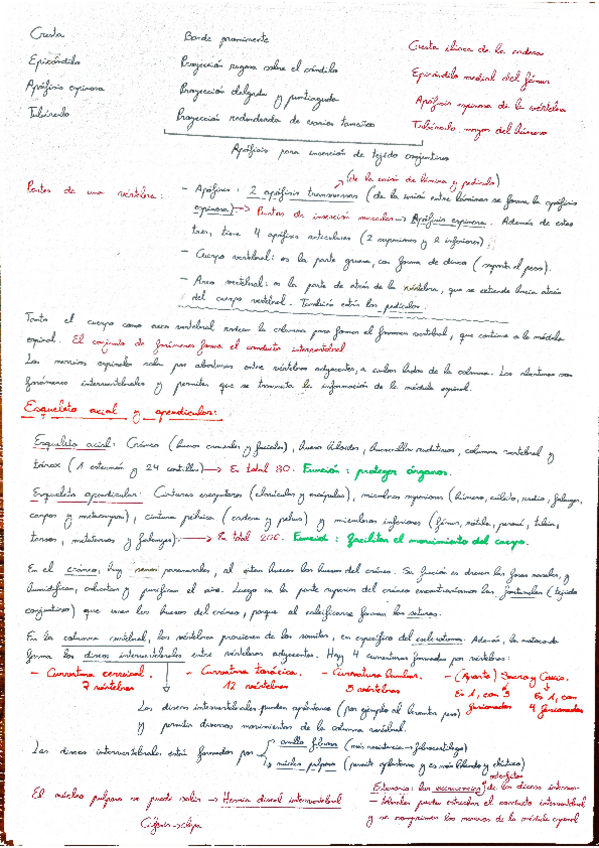 Cresta Borde prominente Cresta ilíaca de la cadera
Epicóndilo Proyección rugosa sobre el cóndilo Epicóndilo medial del fémur
Apófisis espinosa Proyección delgada y puntiaguda Apófisis espinosa de la vértebra
Tubérculo Proyección redondeada de varios tamaños Tubérculo mayor del húmero
Apófisis para inserción de tejido conjuntivo
(de la unión de lámina y pedículo)
Partes de una vértebra: - Apófisis: 2 apófisis transversas (de la unión entre láminas se forma la apófisis
espinosa) → Puntos de inserción muscular → Apófisis espinosa. Además de estas
tres, tiene 4 apófisis articulares (2 superiores y 2 inferiores).
- Cuerpo vertebral: es la parte gruesa, con forma de disco (soporta el peso).
- Arco vertebral: es la parte de atrás de la vértebra, que se extiende hacia atrás
del cuerpo vertebral. También están los pedículos.
Tanto el cuerpo como arco vertebral rodean la columna para formar el foramen vertebral, que contiene a la médula
espinal. El conjunto de forámenes forma el conducto intervertebral
Los nervios espinales salen por aberturas entre vértebras adyacentes, a ambos lados de la columna. Los
forámenes intervertebrales y permiten que se transmita la información de la médula espinal.
Esqueleto axial y apendicular:
Esqueleto axial: Cráneo (huesos craneales y faciales), hueso hioides, huesecillos auditivos, columna vertebral y
tórax (1 esternón y 24 costillas) → En total 80. Función: proteger órganos.
Esqueleto apendicular: Cinturas escapulares (clavículas y escápulas), miembros superiores (húmero, cúbito, radio, falange,
carpos y metacarpos), cintura pélvica (cadera y pelvis) y miembros inferiores (fémur, rótula, peroné, tibia,
tarsos, metatarsos y falanges). → En total 206. Función: facilitar el movimiento del cuerpo.
En el cráneo, hay senos paranasales, al estar huecos los huesos del cráneo. Su función es drenar las fosas nasales, y
humidificar, calentar y purificar el aire. Luego en la parte superior del cráneo encontraríamos las fontanelas (tejido
conjuntivo) que unen los huesos del cráneo, porque al calcificarse forman las suturas.
En la columna vertebral, las vértebras provienen de los somitas, en específico del esclerotomo. Además, la notocorda
forma los discos intervertebrales entre vértebras adyacentes. Hay 4 curvaturas formadas por vértebras:
- Curvatura cervical. - Curvatura torácica. - Curvatura lumbar. - (Aparte) Sacro y Coxis.
7 vértebras 12 vértebras 5 vértebras Es 1, con 5 Es 1, con
fusionadas 4 fusionadas
Los discos intervertebrales pueden aplastarse (por ejemplo al levantar peso)
y permitir diversos movimientos de la columna vertebral.
Los discos intervertebrales están formados por anillo fibroso (más resistencia → fibrocartílago)
núcleo pulposo (permite aplastarse y es más blando y elástico)
El núcleo pulposo se puede salir → Hernia discal intervertebral
Estenosis: las de los discos interver-
tebrales pueden estrechar el conducto intervertebral
y se comprimen los nervios de la médula espinal